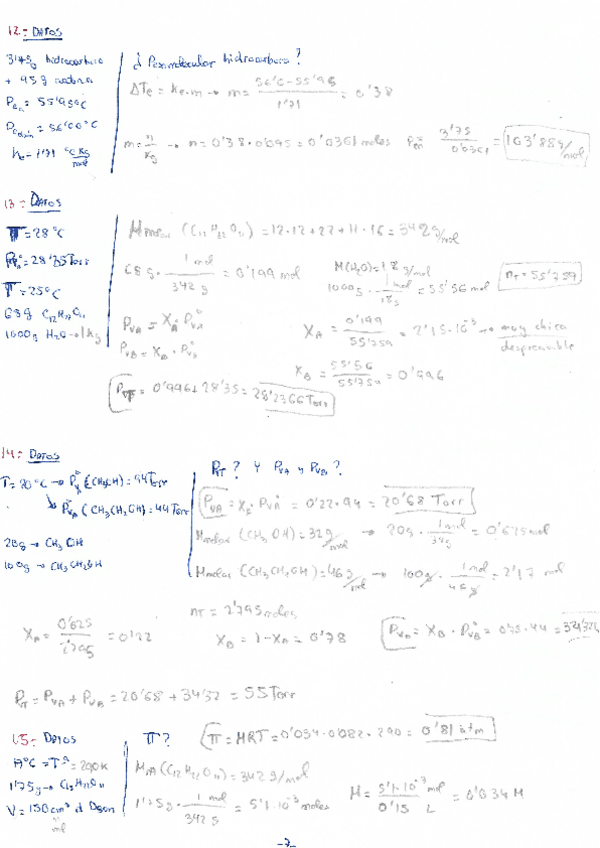 12.- DATOS
3'75g hidrocarburo
+ 95g acetona
= 55'95°C
= 56'00°C
Ke = 1'71 °C Kg/mol
¿ Peso molecular hidrocarburo?
ΔTe = Ke·m → m = 56'0-55'95 / 1'71 = 0'38
m = n/kg → n = 0'38·0'095 = 0'0361 moles Pm = 3'75 / 0'0361 = 103'88 g/mol
13.- DATOS
T = 28°C
= 28'35 Torr
T = 25°C
68g C12H22O11
1000g H2O → 1kg
Mmolar (C12H22O11) = 12·12+22+11·16 = 342 g/mol
68g · 1 mol / 342 g = 0'199 mol
M(H2O) = 18 g/mol
1000g · 1 mol / 18g = 55'56 mol
nT = 55'759
PVA = XA · PVA°
PVB = XB · PVB°
XA = 0'199 / 55'759 = 2'15·10⁻³ → muy chica despreciable
XB = 55'56 / 55'759 = 0'996
PVT = 0'996 · 28'35 = 28'2366 Torr
14.- DATOS
T = 20°C → PVA° (CH3OH) = 94 Torr
PVA (CH3CH2OH) = 44 Torr
20g → CH3OH
100g → CH3CH2OH
PT? y PVA y PVB?
PVA = XA · PVA° = 0'22·94 = 20'68 Torr
Mmolar (CH3OH) = 32 g/mol → 20g · 1 mol = 0'625 mol
Mmolar (CH3CH2OH) = 46 g/mol → 100g · 1 mol / 46g = 2'17 mol
nT = 2'795 moles
XA = 0'625 / 2'795 = 0'22
XB = 1-XA = 0'78
PVB = XB · PVB° = 0'78·44 =
PT = PVA + PVB = 20'68 + 34'32 = 55 Torr
15.- DATOS
17°C = Tª = 290K
1'75g → C12H22O11
V = 150cm³ d Dson
ml
π?
π = MRT = 0'034·0'082·290 = 0'81 atm
Mm (C12H22O11) = 342 g/mol
1'75g · 1 mol / 342 g = 5'1·10⁻³ moles
M = 5'1·10⁻³ mol / 0'15 L = 0'034 M
-7-